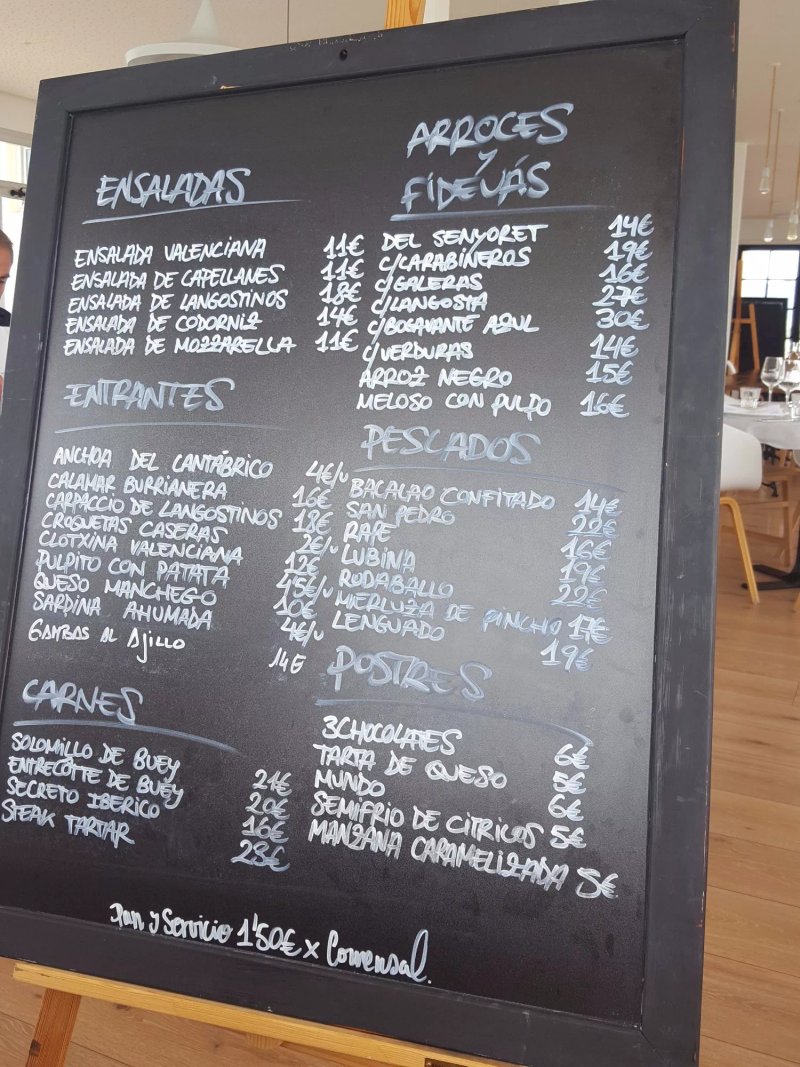 ENSALADAS
ENSALADA VALENCIANA 11€
ENSALADA DE CAPELLANES 11€
ENSALADA DE LANGOSTINOS 18€
ENSALADA DE CODORNIZ 14€
ENSALADA DE MOZZARELLA 11€
ENTRANTES
ANCHOA DEL CANTÁBRICO 4€/u
CALAMAR BURRIANERA 16€
CARPACCIO DE LANGOSTINOS 18€
CROQUETAS CASERAS 2€/u
CLOTXINA VALENCIANA 12€
PULPITO CON PATATA 4'5€/u
QUESO MANCHEGO 10€
SARDINA AHUMADA 4€/u
GAMBAS AL AJILLO 14€
CARNES
SOLOMILLO DE BUEY 21€
ENTRECOTTE DE BUEY 20€
SECRETO IBERICO 16€
STEAK TARTAR 23€
ARROCES
y
FIDEUÁS
DEL SENYORET 14€
C/CARABINEROS 19€
C/GALERAS 16€
C/LANGOSTA 27€
C/BOGAVANTE AZUL 30€
C/VERDURAS 14€
ARROZ NEGRO 15€
MELOSO CON PULPO 16€
PESCADOS
BACALAO CONFITADO 14€
SAN PEDRO 22€
RAPE 16€
LUBINA 19€
RODABALLO 22€
MERLUZA DE PINCHO 17€
LENGUADO 19€
POSTRES
3CHOCOLATES 6€
TARTA DE QUESO 5€
MUNDO 6€
SEMIFRIO DE CITRICOS 5€
MANZANA CARAMELIZADA 5€
Pan y Servicio 1'50€ x Comensal.